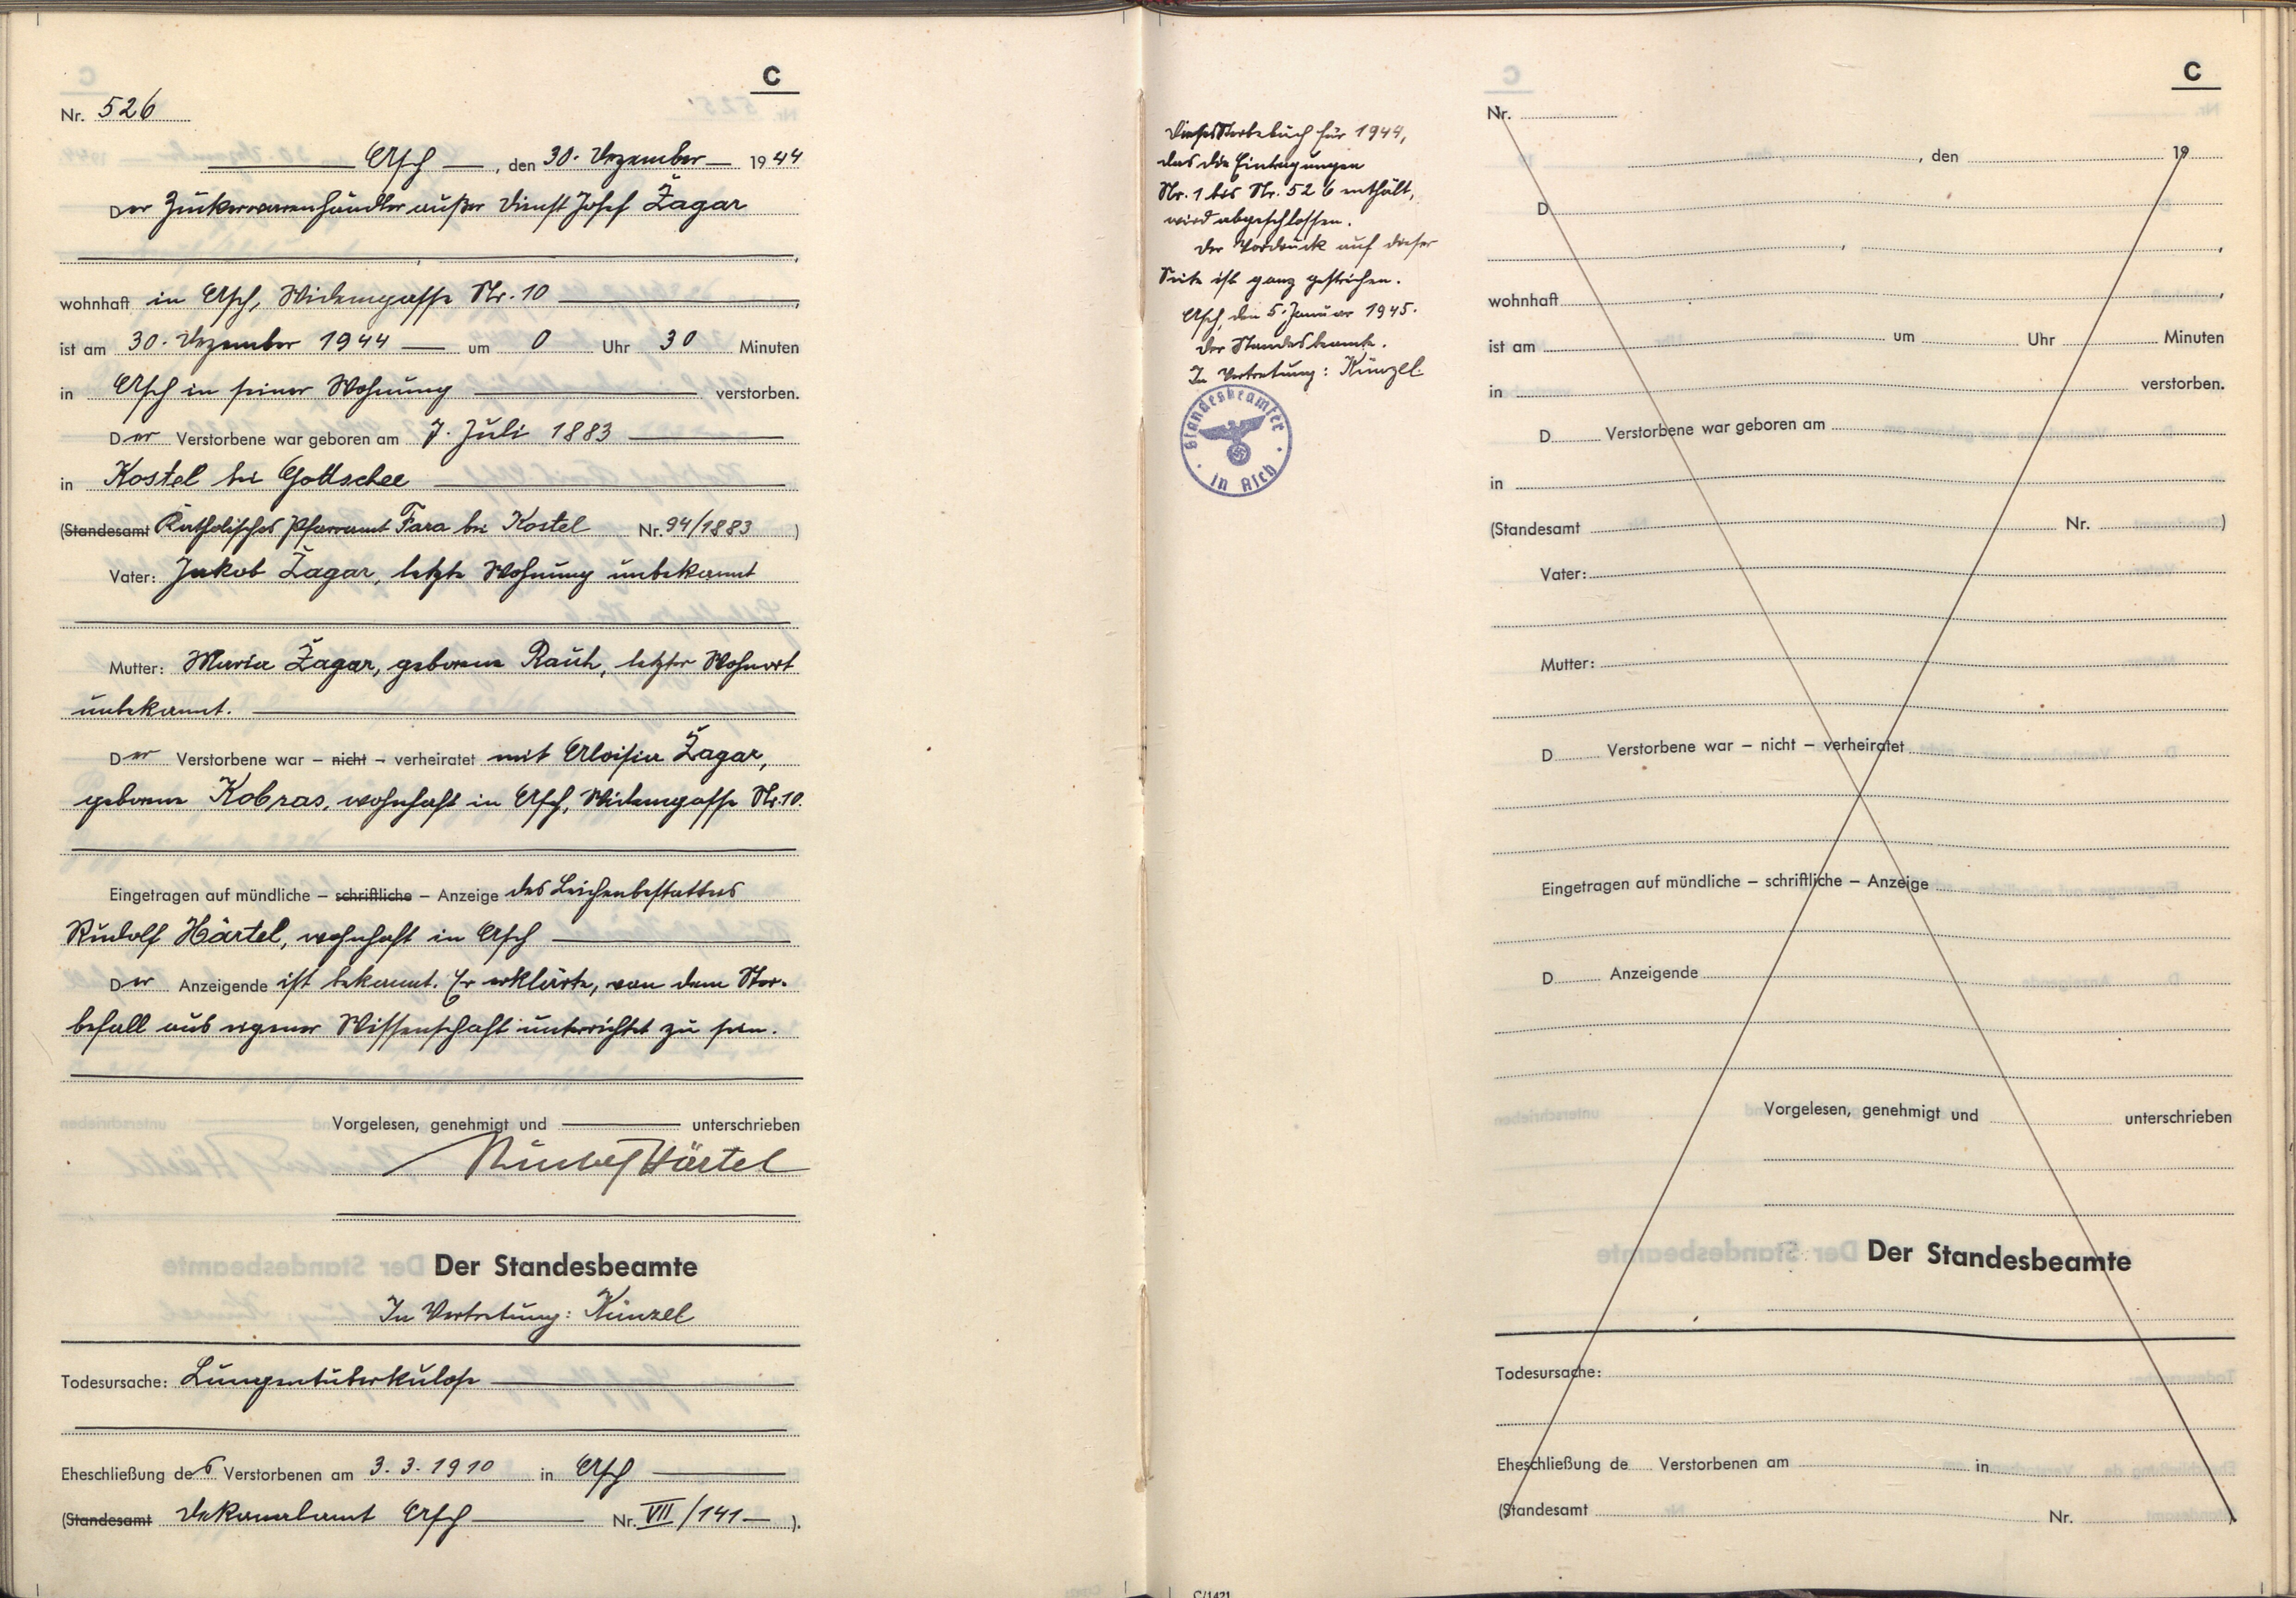 C
Nr. 526
Asch, den 30. Dezember 1944
Der Zuckerwarenhändler außer Dienst Josef Žagar
,
wohnhaft in Asch, Widemgasse Nr. 10,
ist am 30. Dezember 1944 um 0 Uhr 30 Minuten
in Asch in seiner Wohnung verstorben.
Der Verstorbene war geboren am 7. Juli 1883
in Kostel bei Gottschee
(Standesamt Katholisches Pfarramt Fara bei Kostel Nr. 94/1883)
Vater: Jakob Žagar, letzte Wohnung unbekannt
Mutter: Maria Žagar, geborene Rauh, letzter Wohnort
unbekannt.
Der Verstorbene war – nicht – verheiratet mit Aloisia Žagar,
geborene Kobras, wohnhaft in Asch, Widemgasse Nr. 10.
Eingetragen auf mündliche – schriftliche – Anzeige des Leichenbestatters
Rudolf Härtel, wohnhaft in Asch
Der Anzeigende ist bekannt. Er erklärte, von dem Ster-
befall aus eigener Wissenschaft unterrichtet zu sein.
Vorgelesen, genehmigt und unterschrieben
Rudolf Härtel
Der Standesbeamte
In Vertretung: Künzel
Todesursache: Lungentuberkulose
Eheschließung des Verstorbenen am 3.3.1910 in Asch
(Standesamt Dekanalamt Asch Nr. VII/141).
Dieses Sterbebuch für 1944,
das die Eintragungen
Nr. 1 bis Nr. 526 enthält,
wird abgeschlossen.
Der Vordruck auf dieser
Seite ist ganz gestrichen.
Asch, den 5. Januar 1945.
Der Standesbeamte.
In Vertretung: Künzel
Standesbeamter in Asch
C/1421
C
Nr.
, den 19
D
, ,
wohnhaft ,
ist am um Uhr Minuten
in verstorben.
D Verstorbene war geboren am
in
(Standesamt Nr. )
Vater:
Mutter:
D Verstorbene war – nicht – verheiratet
Eingetragen auf mündliche – schriftliche – Anzeige
D Anzeigende
Vorgelesen, genehmigt und unterschrieben
Der Standesbeamte
Todesursache:
Eheschließung de Verstorbenen am in
(Standesamt Nr. ).